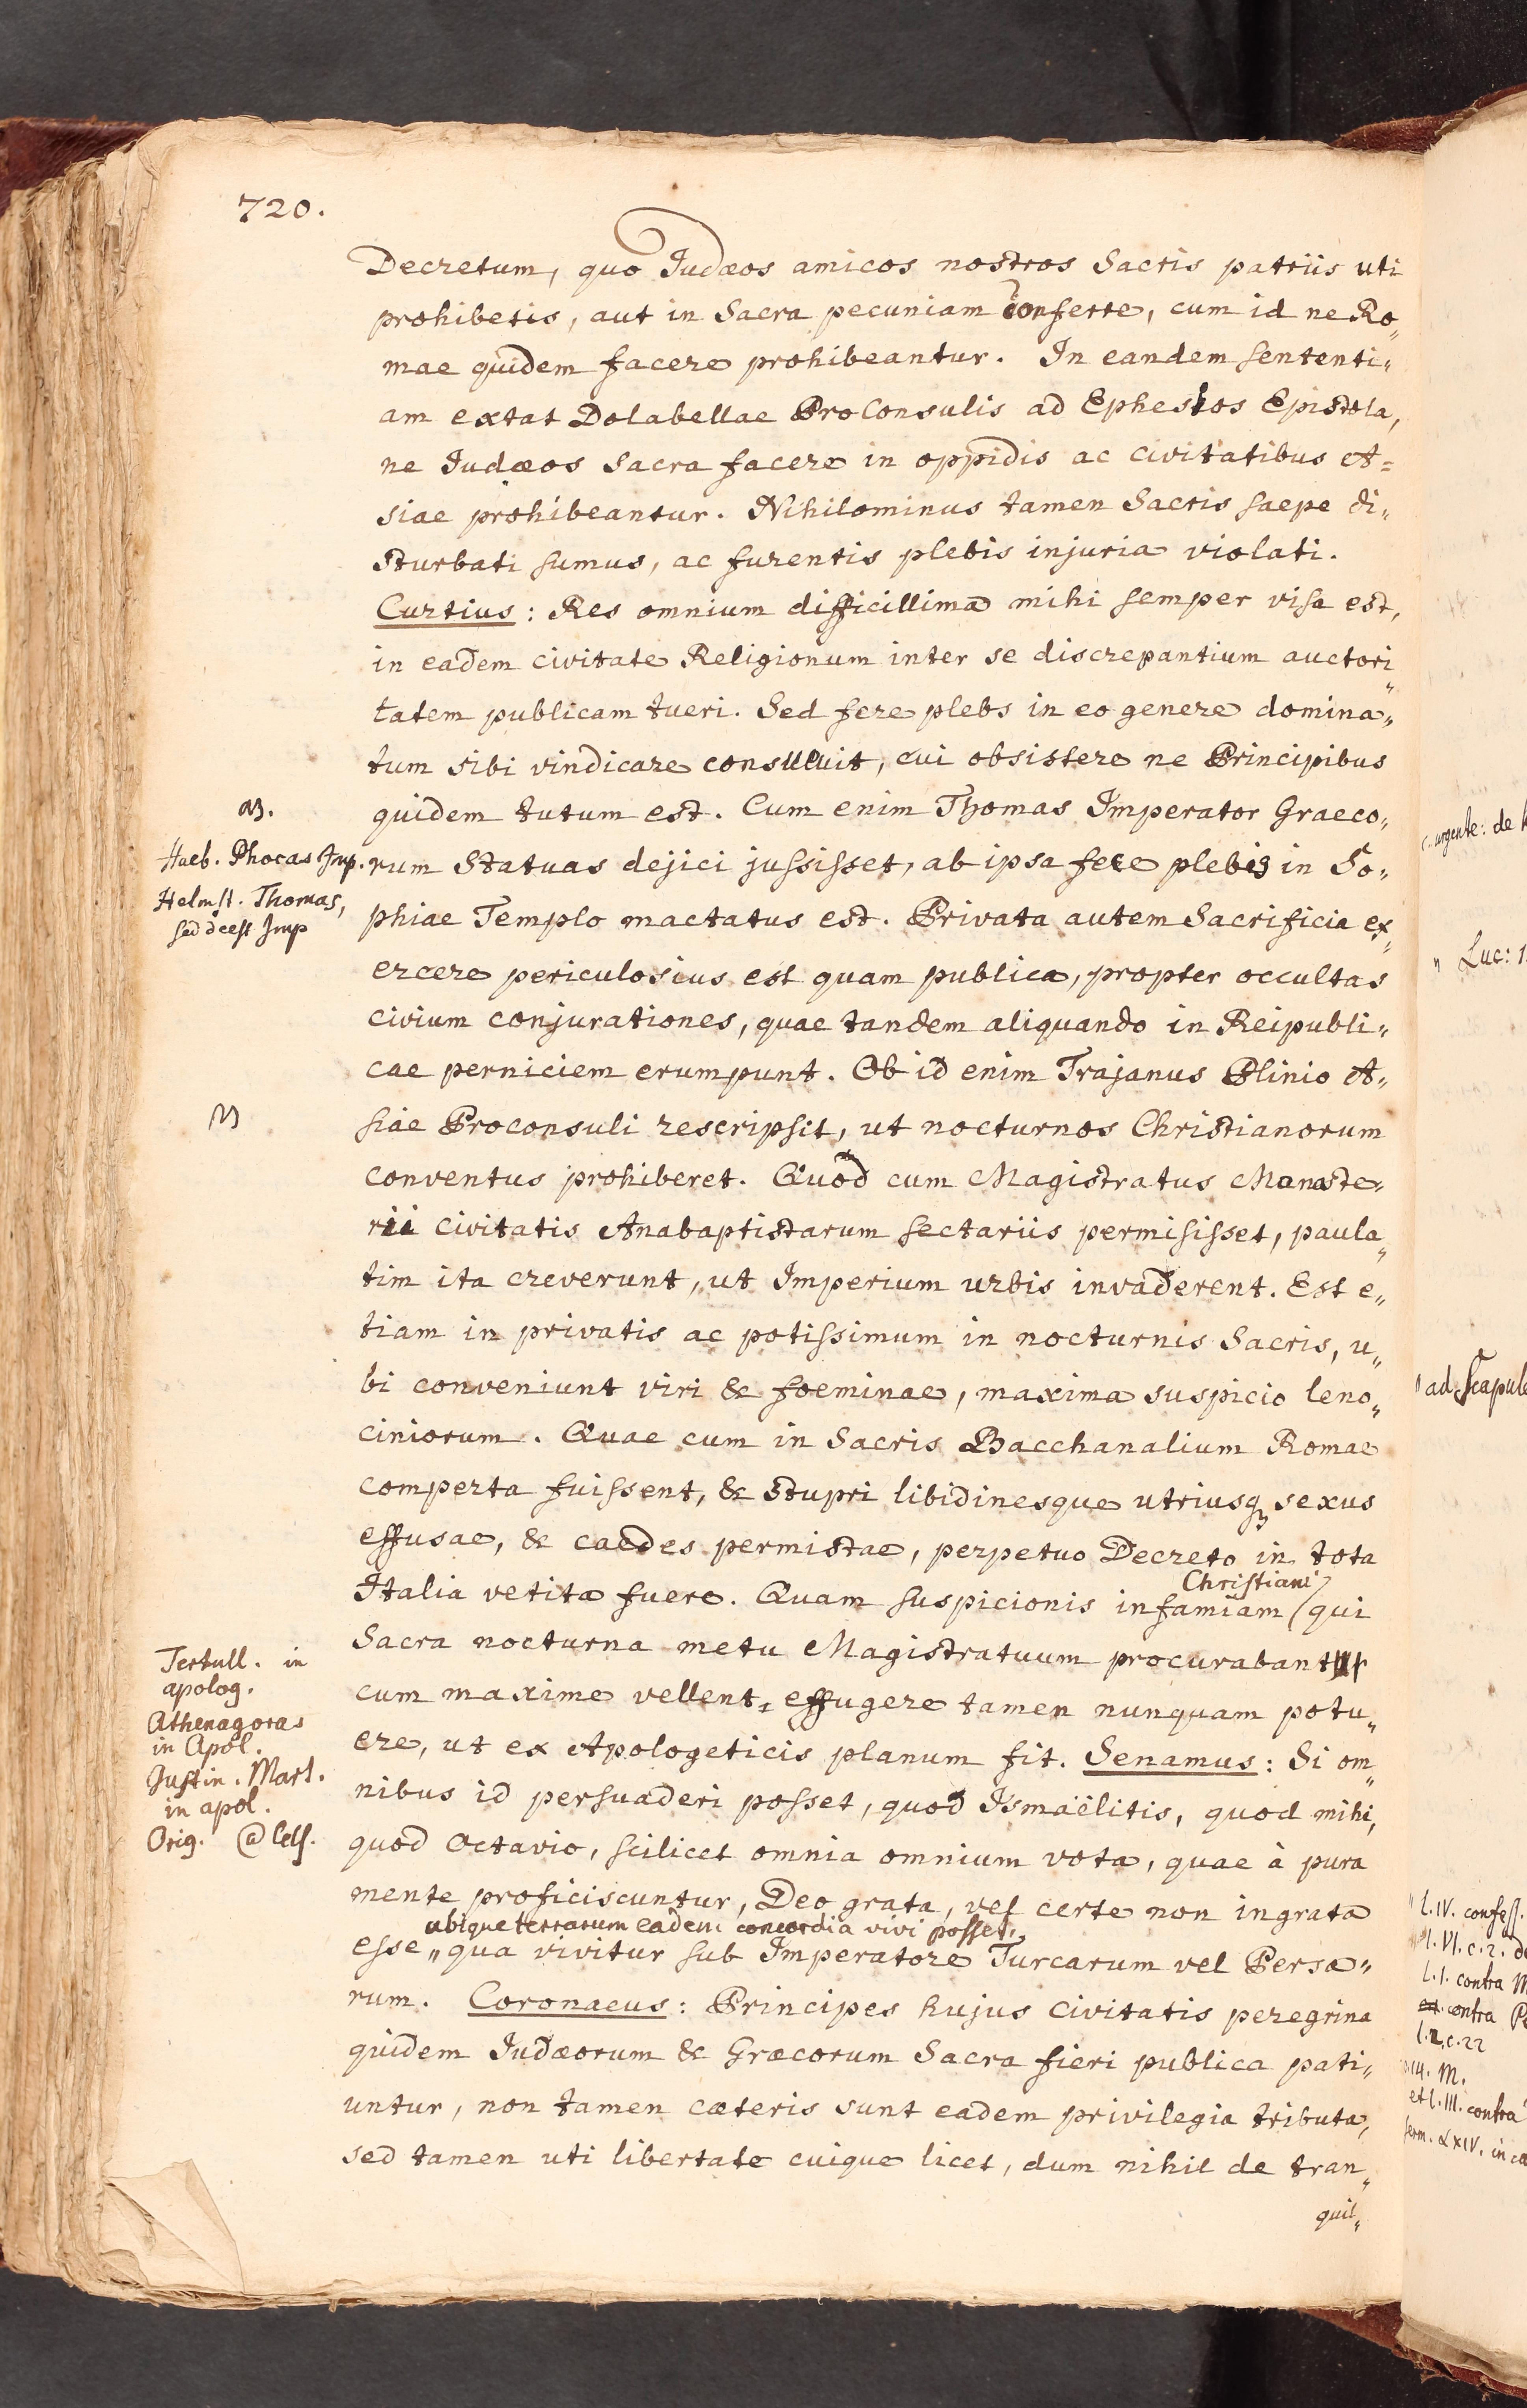 720.
Decretum, quo Judæos amicos nostros Sacris patriis uti
prohibetis, aut in Sacra pecuniam conferre, cum id ne Ro„
mae quidem facere prohibeantur. In eandem sententi„
am extat Dolabellae ProConsulis ad Ephesios Epistola,
ne Judæos sacra facere in oppidis ac civitatibus A=
siae prohibeantur. Nihilominus tamen Sacris saepe di„
sturbati sumus, ac furentis plebis injuria violati.
Curtius: Res omnium difficillima mihi semper visa est,
in eadem civitate Religionum inter se discrepantium auctori„
tatem publicam tueri. Sed fere plebs in eo genere domina„
tum sibi vindicare consuevit, cui obsistere ne Principibus
quidem tutum est. Cum enim Thomas Imperator Graeco„
rum Statuas dejici jussisset, ab ipsa fece plebis in So„
phiae Templo mactatus est. Privata autem Sacrificia ex„
ercere periculosius est quam publica, propter occultas
civium conjurationes, quae tandem aliquando in Reipubli„
cae perniciem erumpunt. Ob id enim Trajanus Plinio A„
siae Proconsuli rescripsit, ut nocturnos Christianorum
conventus prohiberet. Quod cum Magistratus Monaste„
rii civitatis Anabaptistarum sectariis permisisset, paula„
tim ita creverunt, ut Imperium urbis invaderent. Est e„
tiam in privatis ac potissimum in nocturnis Sacris, u„
bi conveniunt viri & foeminae, maxima suspicio leno„
ciniorum. Quae cum in Sacris Bacchanalium Romae
comperta fuissent, & stupri libidinesque utriusq sexus
effusae, & caedes permistae, perpetuo Decreto in tota
Italia vetita fuere. Quam suspicionis infamiam (qui
Christiani
Sacra nocturna metu Magistratuum procurabant
cum maxime vellent, effugere tamen nunquam potu„
ere, ut ex Apologeticis planum fit. Senamus: Si om„
nibus id persuaderi posset, quod Ismaëlitis, quod mihi,
quod Octavio, scilicet omnia omnium vota, quae à pura
mente proficiscuntur, Deo grata, vel certe non ingrata
ubique terrarum eadem concordia vivi posset,
esse „ qua vivitur sub Imperatore Turcarum vel Persa„
rum. Coronaeus: Principes hujus civitatis peregrina
quidem Judæorum & Græcorum Sacra fieri publica pati„
untur, non tamen cæteris sunt eadem privilegia tributa,
sed tamen uti libertate cuique licet, dum nihil de tran„
quil„
Hueb. Phocas Imp.
Helmst. Thomas,
sed deest Imp
Tertull. in
apolog.
Athenagoras
in Apol.
Justin. Mart.
in apol.
Orig. @ Cels.
urgente: de
„ Luc: 1
ad Scapule
„ l. IV. confess.
l. VI. c. 2. d
l. I. contra M
contra Pe
l. 2, c. 22
M.
et l. III. contra
XXIV. in ca